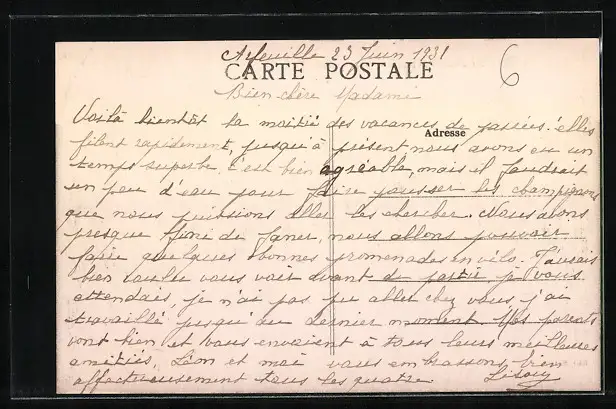 Arfeuille 23 Juin 1931
6
CARTE POSTALE
Bien chère Madame
Adresse
Voilà bientôt la moitié des vacances de passées! elles
filent rapidement, jusqu'à présent nous avons eu un
temps superbe. c'est bien agréable, mais il faudrait
un peu d'eau pour faire pousser les champignons
que nous puissions aller les chercher. Nous avons
presque fini de faner, nous allons pouvoir
faire quelques bonnes promenades en vélo. J'aurais
bien voulu vous voir avant de partir je vous
attendais, je n'ai pas pu aller chez vous j'ai
travaillé jusqu'au dernier moment. Mes parents
vont bien et vous envoient à tous leurs meilleures
amitiés, Léon et moi vous embrassons bien
affectueusement tous les quatre